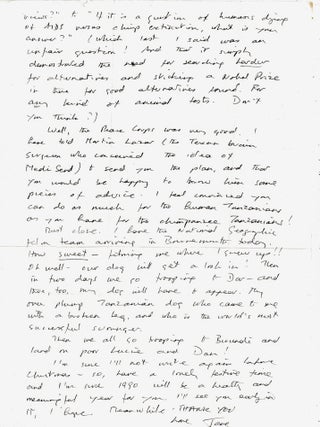 voices?" & "If it is a question of humans dying
of AIDS versus chimp extinction, what is your
answer?" (Which last I said was an
unfair question! And that it simply
demonstrated the need for searching harder
for alternatives and sticking a Nobel Prize
in line for good alternatives found. For
any kind of animal tests. Don't
you think?)
Well, the Peace Corps was very good. I
have told Martin (the Texan brain
surgeon who conceived the idea of
Medi Send) to send you the plan, and that
you would be happy to throw him some
pieces of advice. I feel convinced you
can do as much for the human Tanzanians
as you have for the chimpanzee Tanzanians!
Must close. I have the National Geographic
film team arriving in Bournemouth today.
How sweet - filming me where I grew up!!
Oh well - our dog will get a look in! Then
in two days we go to Dar - and
there, too, my dog will have to appear. My
own plump Tanzanian dog who came to me
with a broken leg, and who is the world's most
successful scrounger.
Then we all go to Burundi and
land on poor and Dan!
I'm sure I'll not write again before
Christmas - so, have a lovely festive time
and I'm sure 1990 will be a healthy and
meaningful year for you. I'll see you early in
it, I hope. Meanwhile - THANK YOU
love, Jane